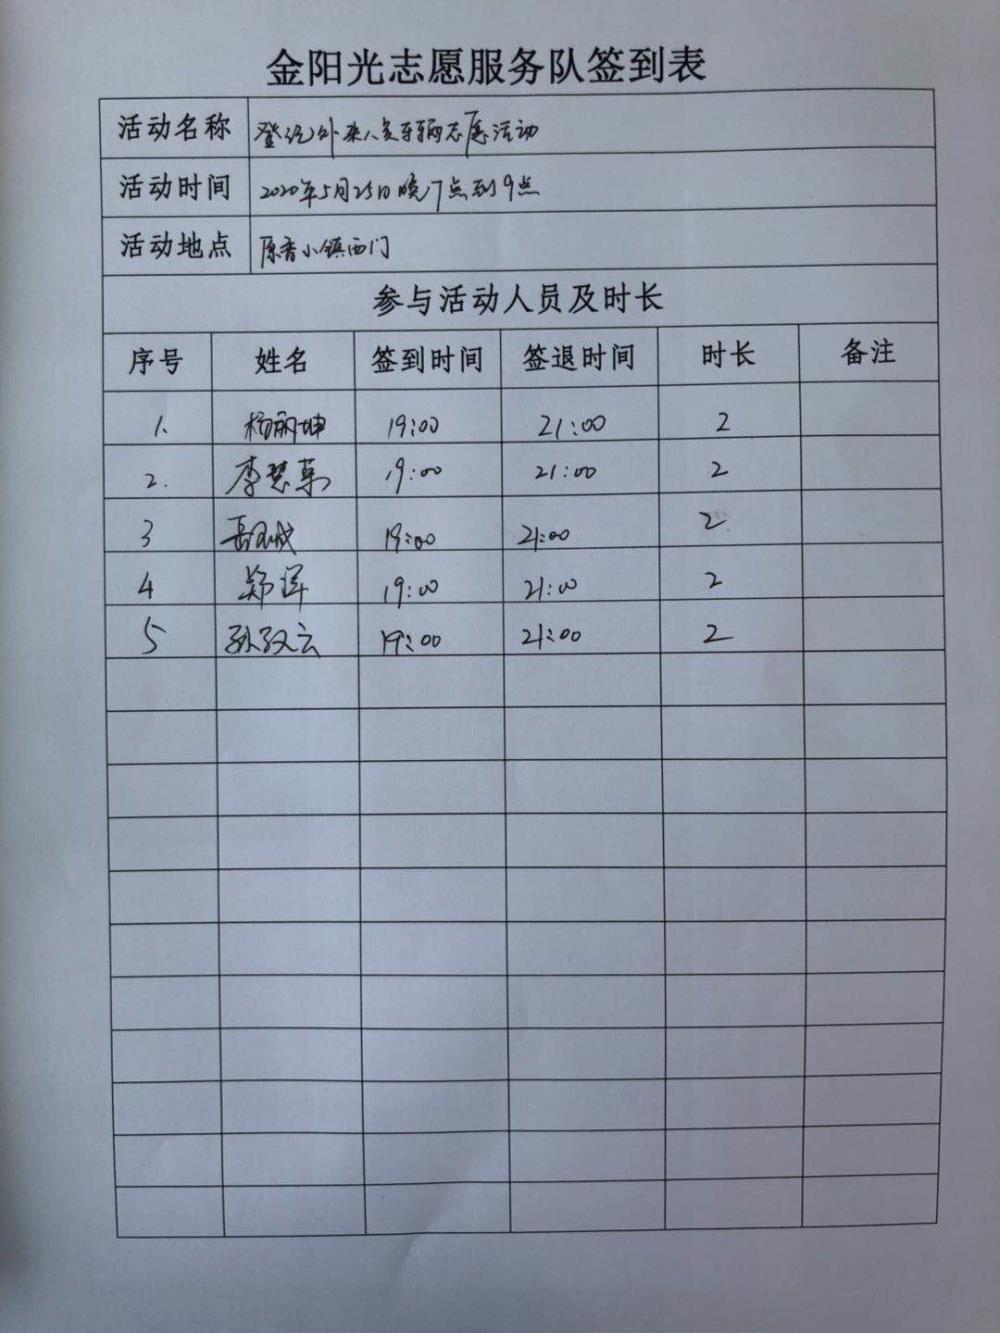 金阳光志愿服务队签到表
活动名称 登记外来人员车辆志愿活动
活动时间 2020年5月25日晚7点到9点
活动地点 原香小镇西门
参与活动人员及时长
序号 姓名 签到时间 签退时间 时长 备注
1. 杨丽坤 19:00 21:00 2
2. 李慧英 19:00 21:00 2
3 19:00 21:00 2
4 郑军 19:00 21:00 2
5 孙孜云 19:00 21:00 2